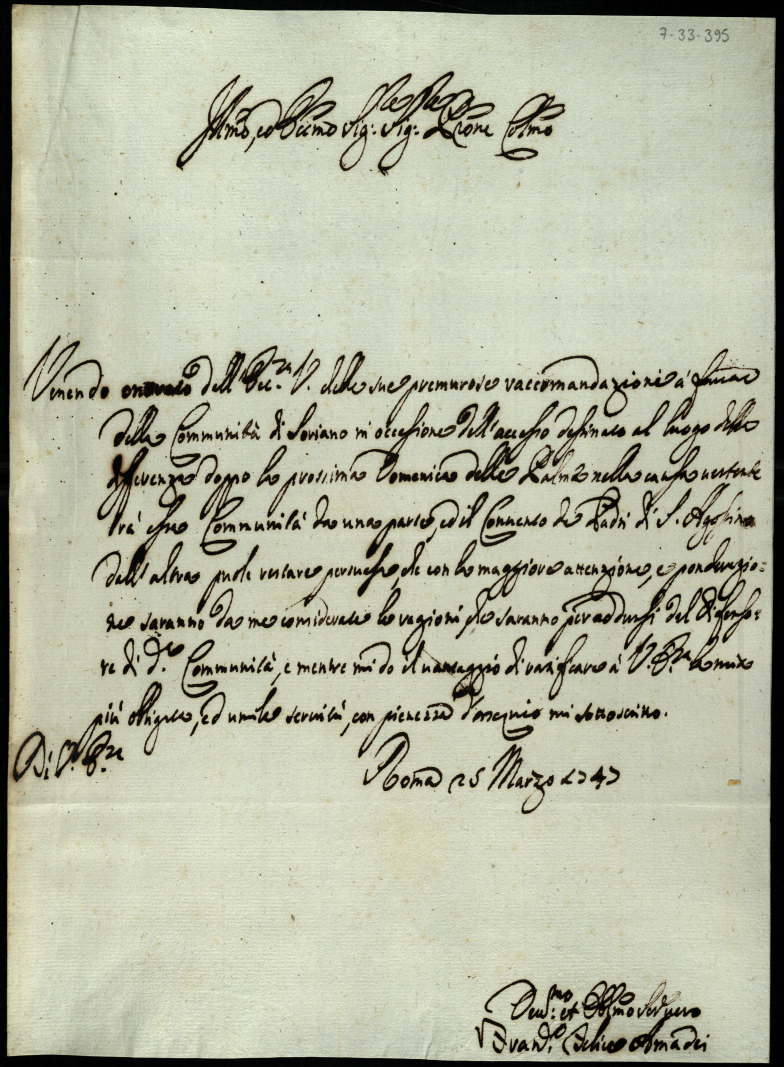 7-33-395
Illmo, ed Eccmo Sig: Sig: Prone Colmo
Venendo onorato dell'Ecc.za V. delle sue premurose raccomandazioni à favore
della Communità di Soriano in occasione dell'accesso destinato al luogo della
differenza doppo la prossima Domenica delle Palme nella causa vertente
trà essa Communità da una parte, ed il Convento de Padri di S. Agostino
dall'altra puole restare persuasa, che con la maggiore attenzione, e ponderazio=
ne saranno da me considerate le ragioni, che saranno per addursi dal difenso=
re di d.a Communità, e mentre mi do il vantaggio di ratificare à V. E.za la mia
più obligata, ed umile servitù, con pienezza d'ossequio mi sottoscrivo.
Di V. E.za
Roma 25 Marzo 1747
Devmo: et Obbmo Serv vero
Amadei